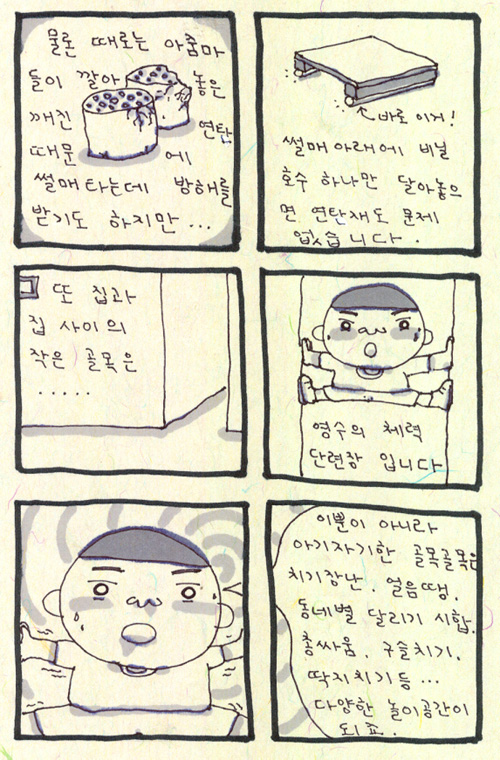 물론 때로는 아줌마
들이 깔아 놓은
깨진 연탄
때문에
썰매타는데 방해를
받기도 하지만 ...
바로 이거!
썰매 아래에 비닐
호수 하나만 달아놓으
면 연탄재도 문제
없습니다.
또 집과
집 사이의
작은 골목은
.....
영수의 체력
단련장 입니다
이뿐이 아니라
아기자기한 골목골목은
치기장난, 얼음땡,
동네별 달리기 시합,
총싸움, 구슬치기,
딱지치기등 ...
다양한 놀이공간이
되죠.